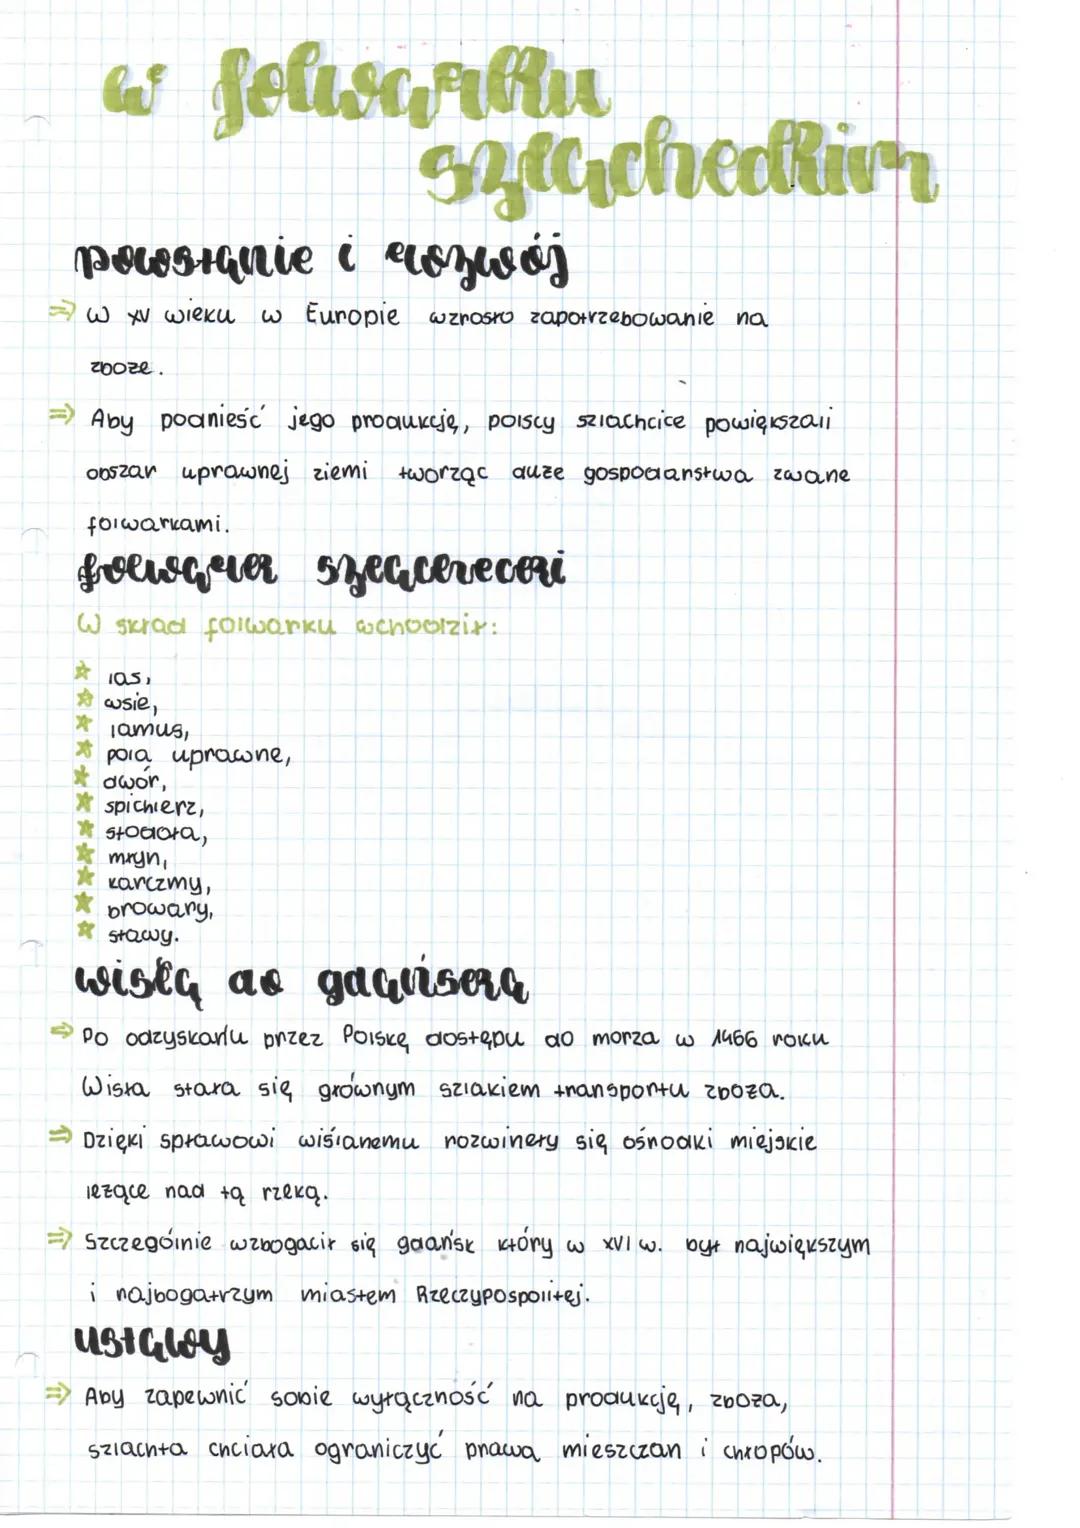 w folwarku
szlacheckim
powstanie i rozwój
⇒ w XV wieku w Europie wzrosło zapotrzebowanie na
zboże.
⇒ Aby podnieść jego produkcję, polscy szlachcice powiększali
obszar uprawnej ziemi tworząc duże gospodarstwa zwane
folwarkami.
folwark szlachecki
W skład folwarku wchodził:
☆ las,
☆ wsie,
☆ lamus,
☆ pola uprawne,
☆ dwór,
☆ spichlerz,
☆ stodoła,
☆ młyn,
☆ karczmy,
☆ browary,
☆ stawy.
wisłą do gdańska
⇒ Po odzyskaniu przez Polskę dostępu do morza w 1466 roku
Wisła stała się głównym szlakiem transportu zboża.
⇒ Dzięki spławowi wiślanemu rozwineły się ośrodki miejskie
leżące nad tą rzeką.
⇒ Szczególnie wzbogacił się gdańsk który w XVI w. był największym
i najbogatrzym miastem Rzeczypospolitej.
ustawy
⇒ Aby zapewnić sobie wyłączność na produkcję, zboża,
szlachta chciała ograniczyć prawa mieszczan i chłopów.